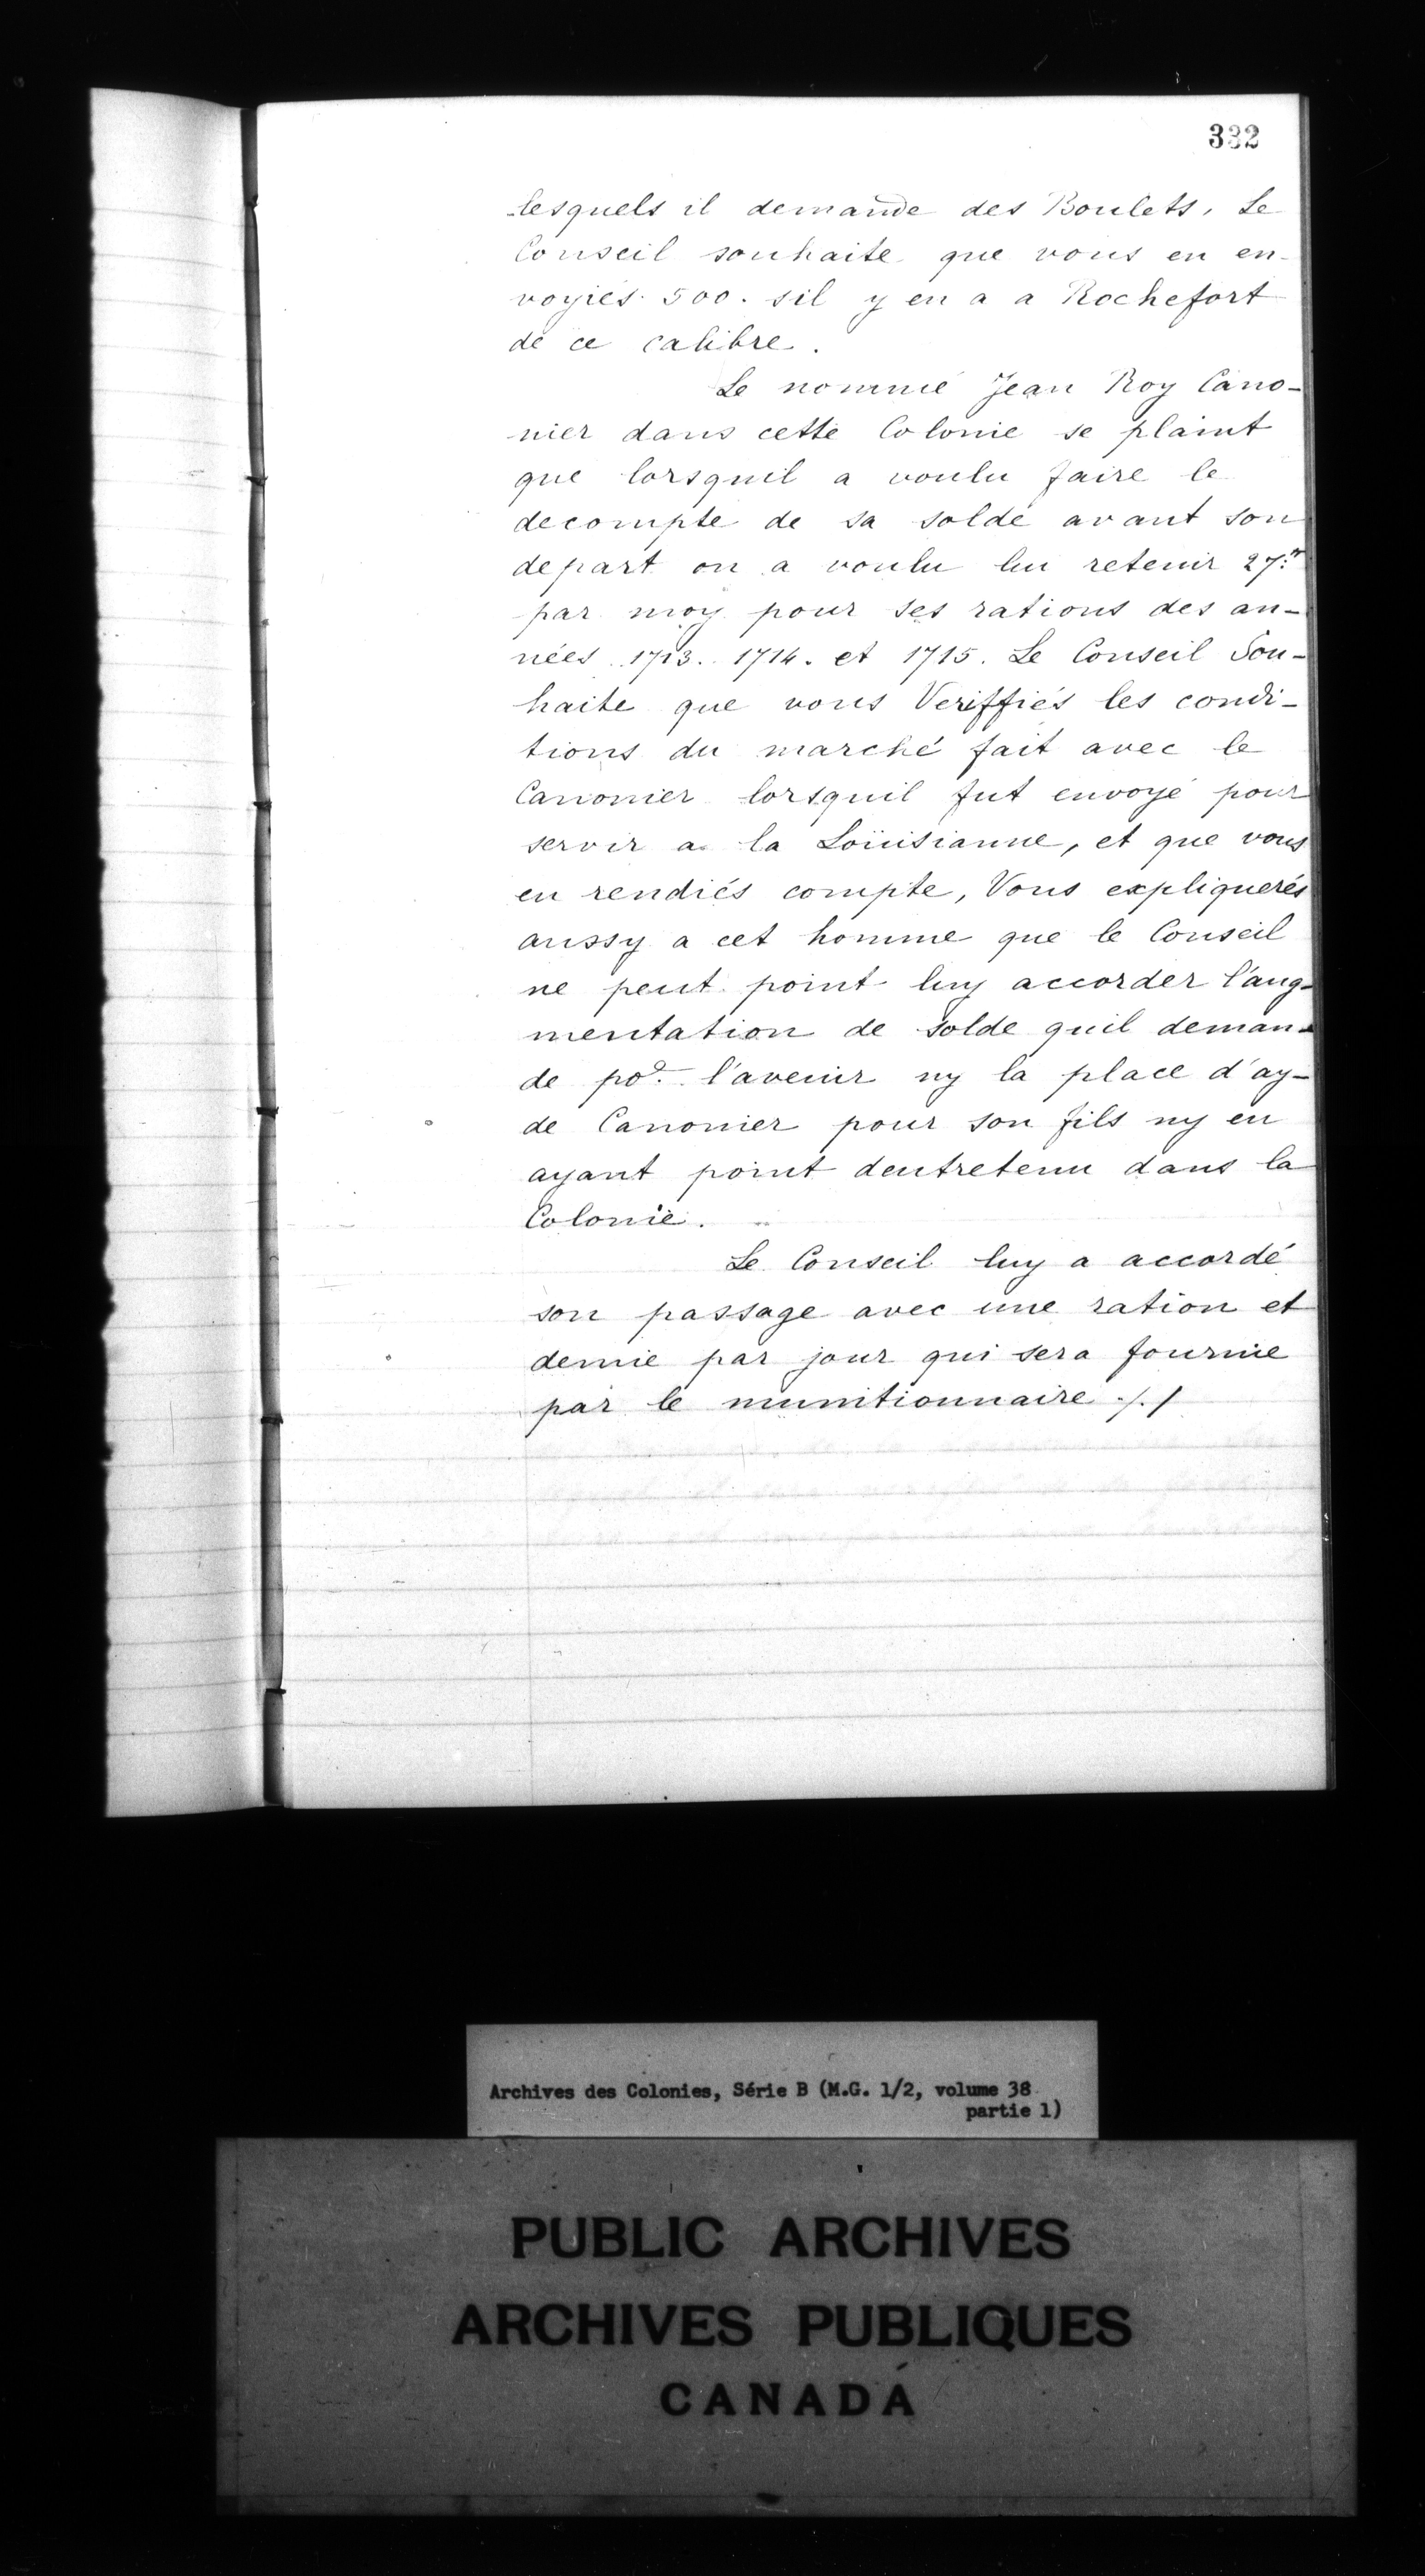 332
lesquels il demande des Boulets, Le
Conseil souhaite que vous en en-
voyiés 500. sil y en a a Rochefort
de ce calibre.
Le nommé Jean Roy Cano-
nier dans cette Colonie se plaint
que lorsquil a voulu faire le
decompte de sa solde avant son
depart on a voulu lui retenir 27.tt
par moy pour ses rations des an-
nées 1713. 1714. et 1715. Le Conseil Sou-
haite que vous Veriffiés les condi-
tions du marché fait avec le
Canonier lorsquil fut envoyé pour
servir a la Loüisianne, et que vous
en rendiés compte, Vous expliquerés
aussy a cet homme que le Conseil
ne peut point luy accorder l'aug-
mentation de solde quil deman-
de por. l'avenir ny la place d'ay-
de Canonier pour son fils ny en
ayant point dentretenu dans la
Colonie.
Le Conseil luy a accordé
son passage avec une ration et
demie par jour qui sera fournie
par le munitionnaire ./. /
Archives des Colonies, Série B (M.G. 1/2, volume 38
partie 1)
PUBLIC ARCHIVES
ARCHIVES PUBLIQUES
CANADA